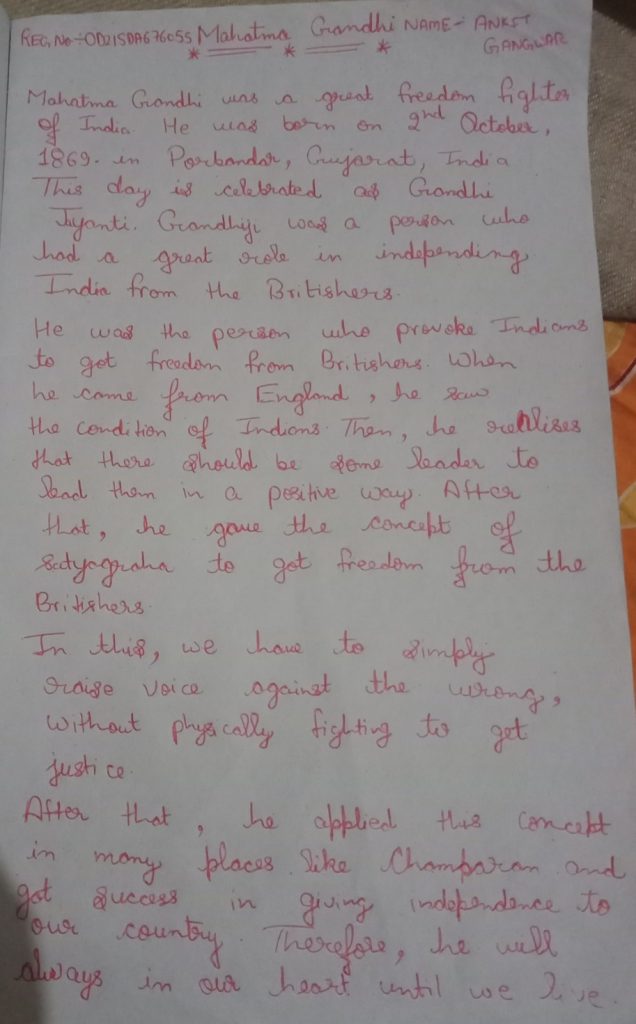 REG, No÷OD21SBA676055 Mahatma Gandhi NAME- ANKIT
GANGWAR
Mahatma Gandhi was a great freedom fighter
of India. He was born on 2nd October,
1869. in Porbandar, Gujarat, India
This day is celebrated as Gandhi
Jiyanti. Gandhiji was a person who
had a great role in independing
India from the Britishers.
He was the person who provoke Indians
to get freedom from Britishers. When
he came from England, he saw
the condition of Indians. Then, he realises
that there should be some leader to
lead them in a positive way. After
that, he gave the concept of
Satyagraha to get freedom from the
Britishers.
In this, we have to simply
raise voice against the wrong,
without physically fighting to get
justice.
After that, he applied this concept
in many places like Champaran and
got success in giving independence to
our country. Therefore, he will
always in our heart until we live.